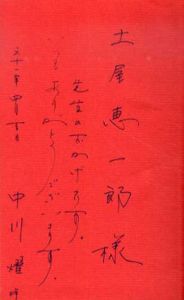 土屋恵一郎様
先生のおかげです。
いつもありがとうございます。
十一年
中川